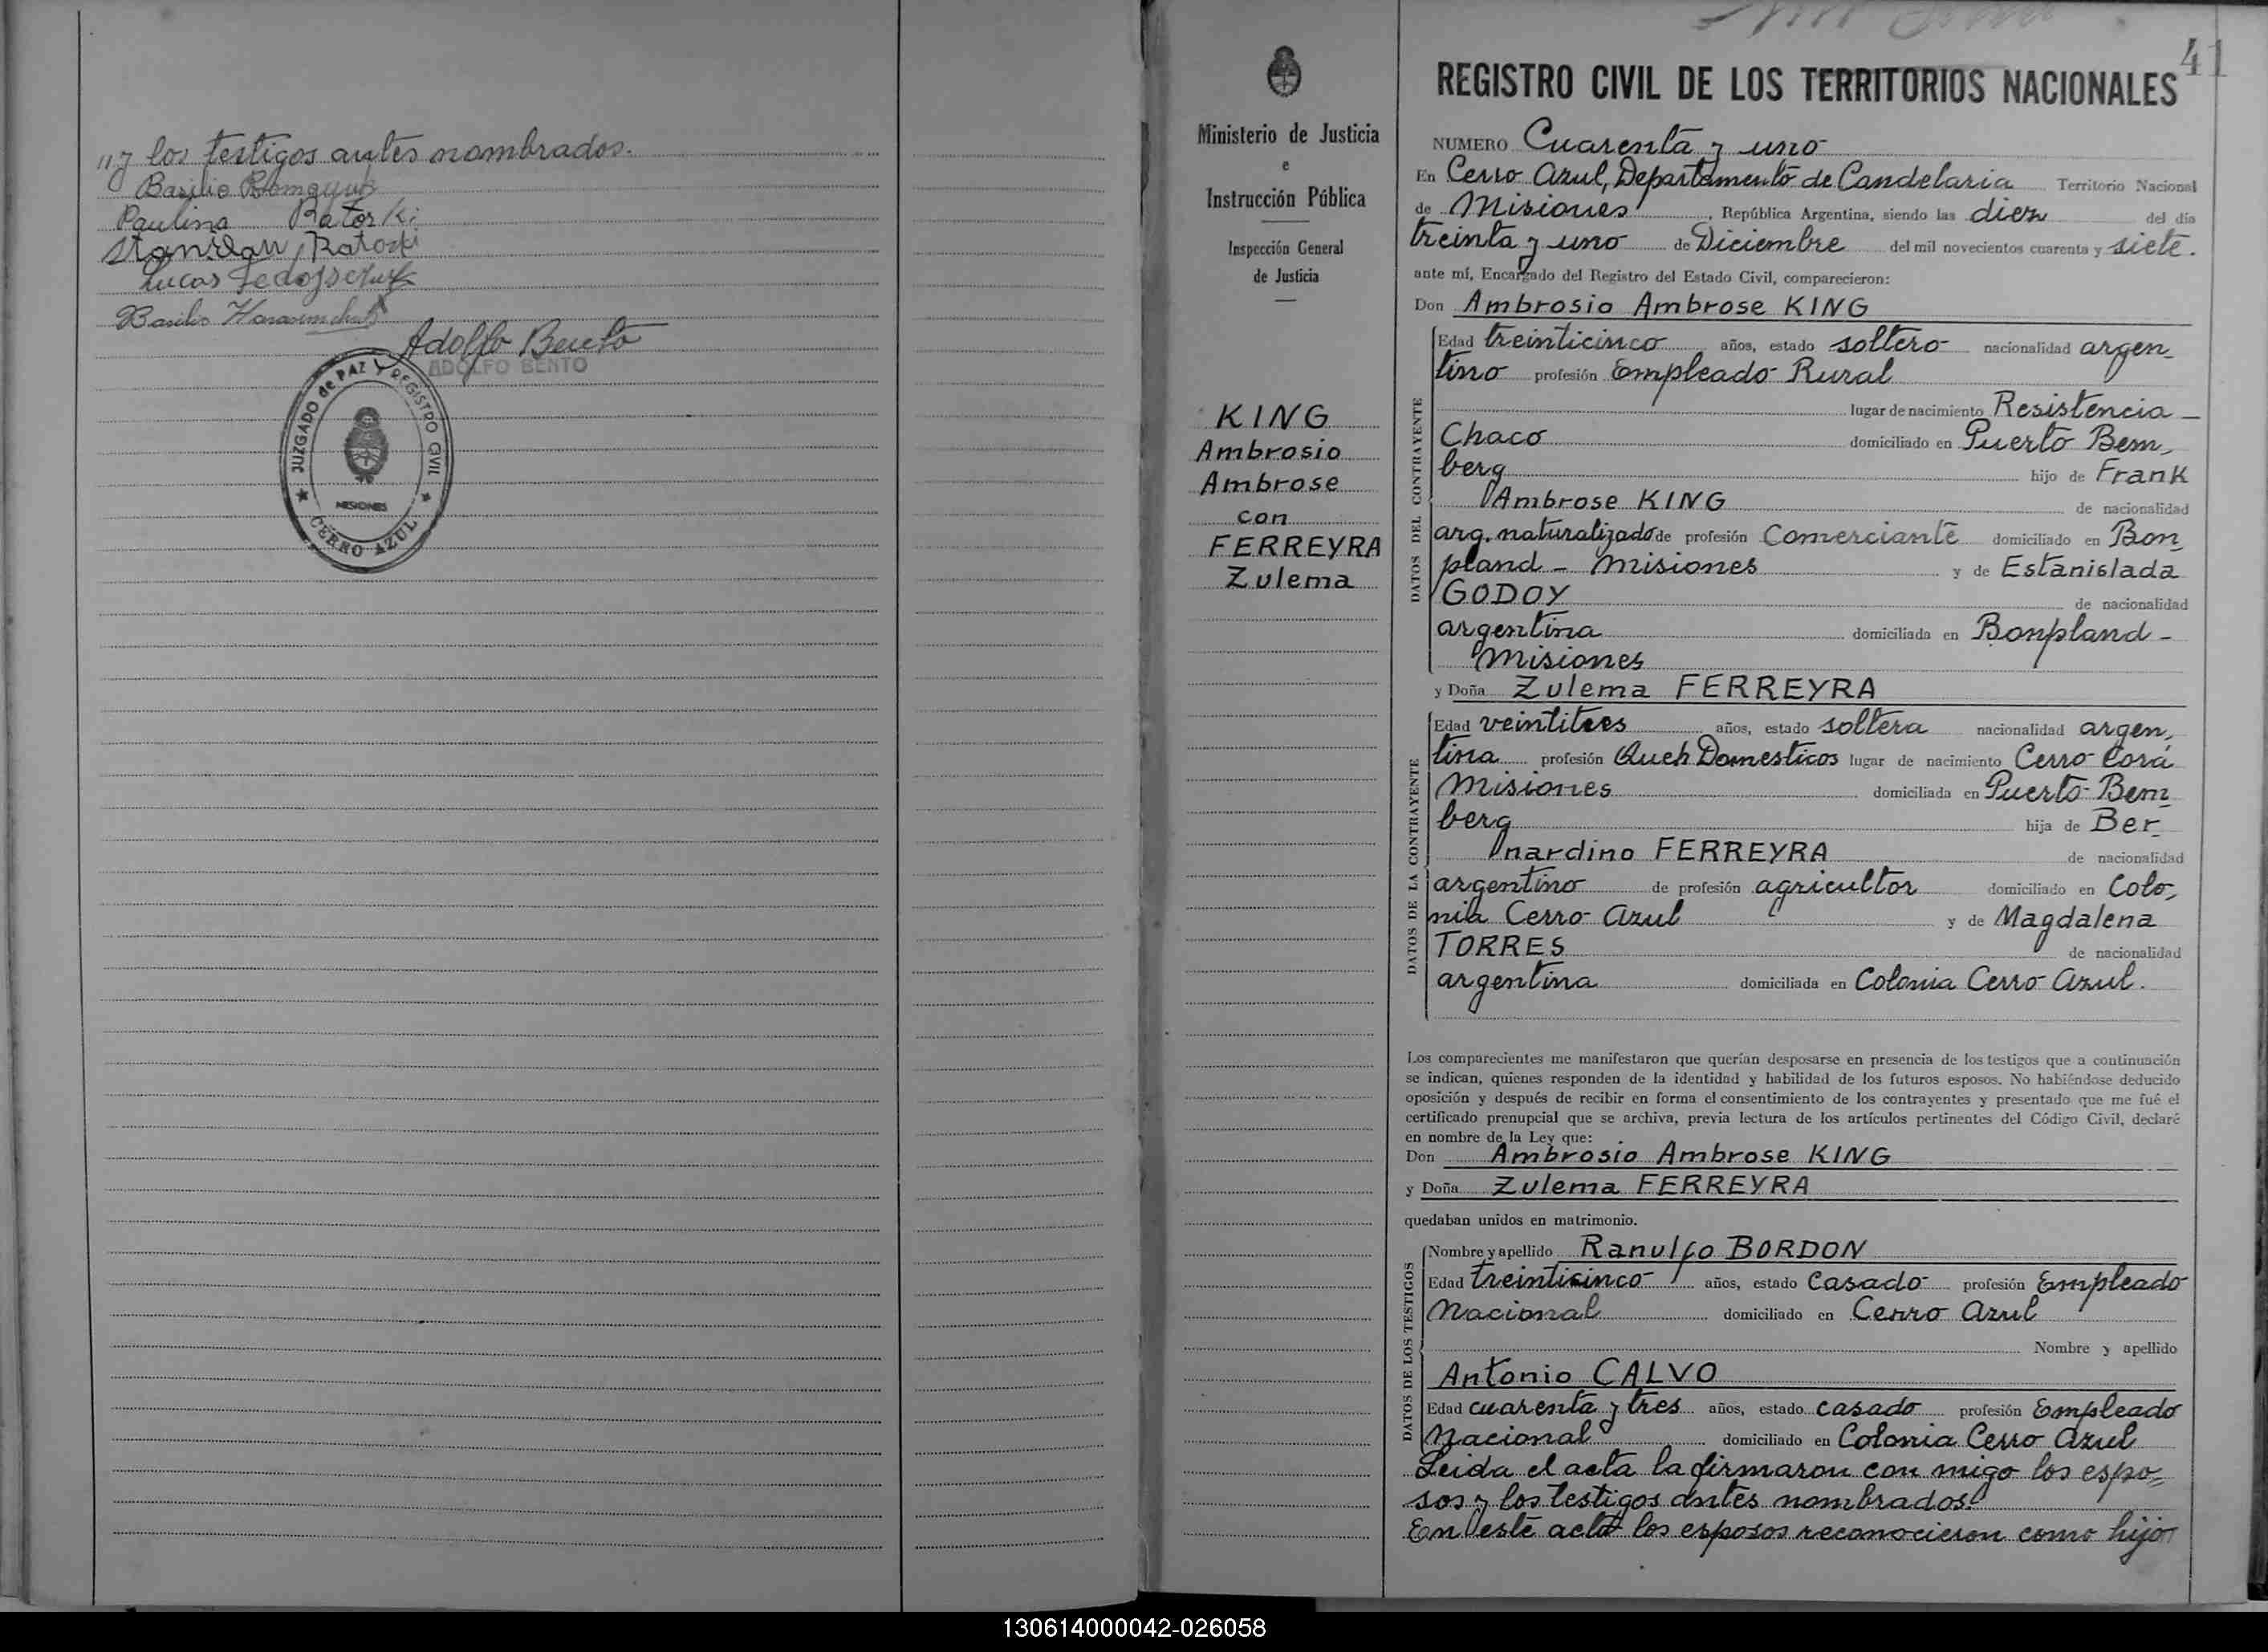 "y los testigos antes nombrados.
Basilio
Paulina Ratoski
Stanislau Ratoski
Lucas
Basilio
Adolfo Bento
ADOLFO BENTO
JUZGADO de PAZ Y REGISTRO CIVIL
MISIONES
CERRO AZUL
Ministerio de Justicia
e
Instrucción Pública
Inspección General
de Justicia
KING
Ambrosio
Ambrose
con
FERREYRA
Zulema
41
REGISTRO CIVIL DE LOS TERRITORIOS NACIONALES
NUMERO Cuarenta y uno
En Cerro Azul, Departamento de Candelaria Territorio Nacional
de Misiones, República Argentina, siendo las diez del día
treinta y uno de Diciembre del mil novecientos cuarenta y siete.
ante mí, Encargado del Registro del Estado Civil, comparecieron:
Don Ambrosio Ambrose KING
DATOS DEL CONTRAYENTE
Edad treinticinco años, estado soltero nacionalidad argen-
tino profesión Empleado Rural
lugar de nacimiento Resistencia -
Chaco domiciliado en Puerto Bem-
berg hijo de Frank
Ambrose KING de nacionalidad
arg. naturalizado de profesión Comerciante domiciliado en Bon-
pland - Misiones y de Estanislada
GODOY de nacionalidad
argentina domiciliada en Bonpland -
Misiones
y Doña Zulema FERREYRA
DATOS DE LA CONTRAYENTE
Edad veintitres años, estado soltera nacionalidad argen-
tina profesión Queh. Domesticos lugar de nacimiento Cerro Corá
Misiones domiciliada en Puerto Bem-
berg hija de Ber-
nardino FERREYRA de nacionalidad
argentino de profesión agricultor domiciliado en Colo-
nia Cerro Azul y de Magdalena
TORRES de nacionalidad
argentina domiciliada en Colonia Cerro Azul.
Los comparecientes me manifestaron que querían desposarse en presencia de los testigos que a continuación
se indican, quienes responden de la identidad y habilidad de los futuros esposos. No habiéndose deducido
oposición y después de recibir en forma el consentimiento de los contrayentes y presentado que me fué el
certificado prenupcial que se archiva, previa lectura de los artículos pertinentes del Código Civil, declaré
en nombre de la Ley que:
Don Ambrosio Ambrose KING
y Doña Zulema FERREYRA
quedaban unidos en matrimonio.
DATOS DE LOS TESTIGOS
Nombre y apellido Ranulfo BORDON
Edad treinticinco años, estado casado profesión Empleado
Nacional domiciliado en Cerro Azul
Nombre y apellido
Antonio CALVO
Edad cuarenta y tres años, estado casado profesión Empleado
Nacional domiciliado en Colonia Cerro Azul
Leida el acta la firmaron con migo los espo-
sos y los testigos antes nombrados.
En este acta los esposos reconocieron como hijo
130614000042-026058